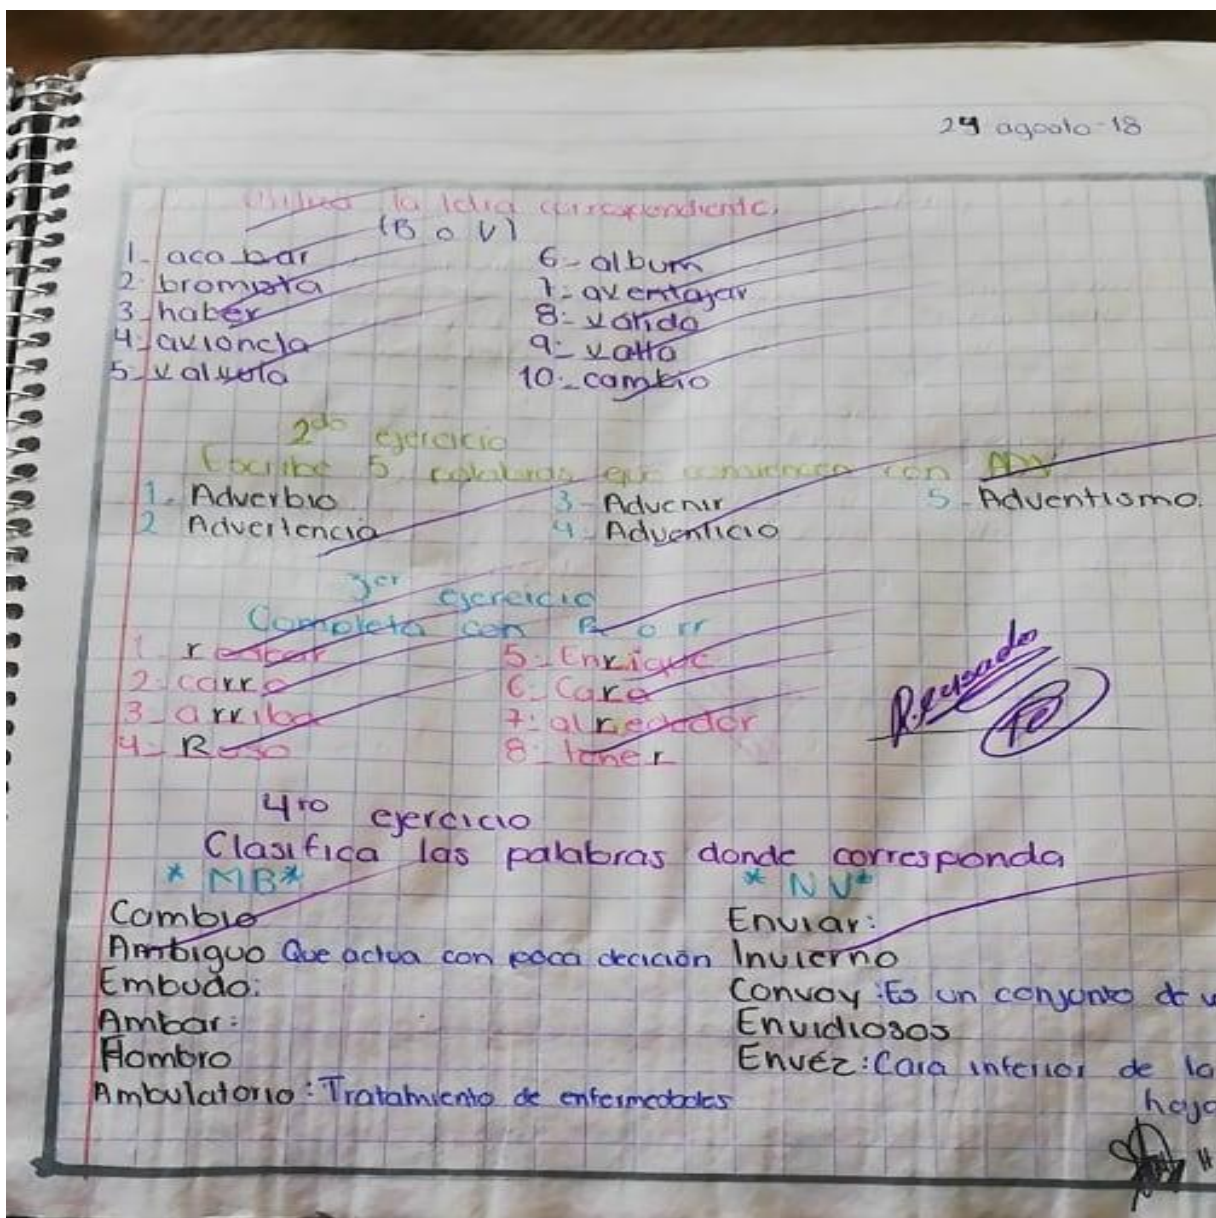 24 agosto-18
la letra correspondiente.
(B o V)
1- acabar
2- bromista
3- haber
4- avioncla
5- valvula
6- album
7- aventajar
8- válido
9- valla
10- cambio
2do ejercicio
Escribe 5 palabras que comiencen con ADV
1. Adverbio
2 Advertencia
3- Advenir
4- Adventicio
5- Adventismo.
3er ejercicio
Completa con R o rr
1 rescar
2- carro
3- arriba
4- Roso
5- Enrique
6- Cara
7- alrededor
8- tener
Revisado
10
4ro ejercicio
Clasifica las palabras donde corresponda
* MB*
Cambio
Ambiguo Que actua con poca decición
Embudo:
Ambar:
Hombro
Ambulatorio: Tratamiento de enfermedades
* NV*
Enviar:
Invierno
Convoy: Es un conjunto de v
Envidiosos
Envéz: Cara inferior de la
hoja